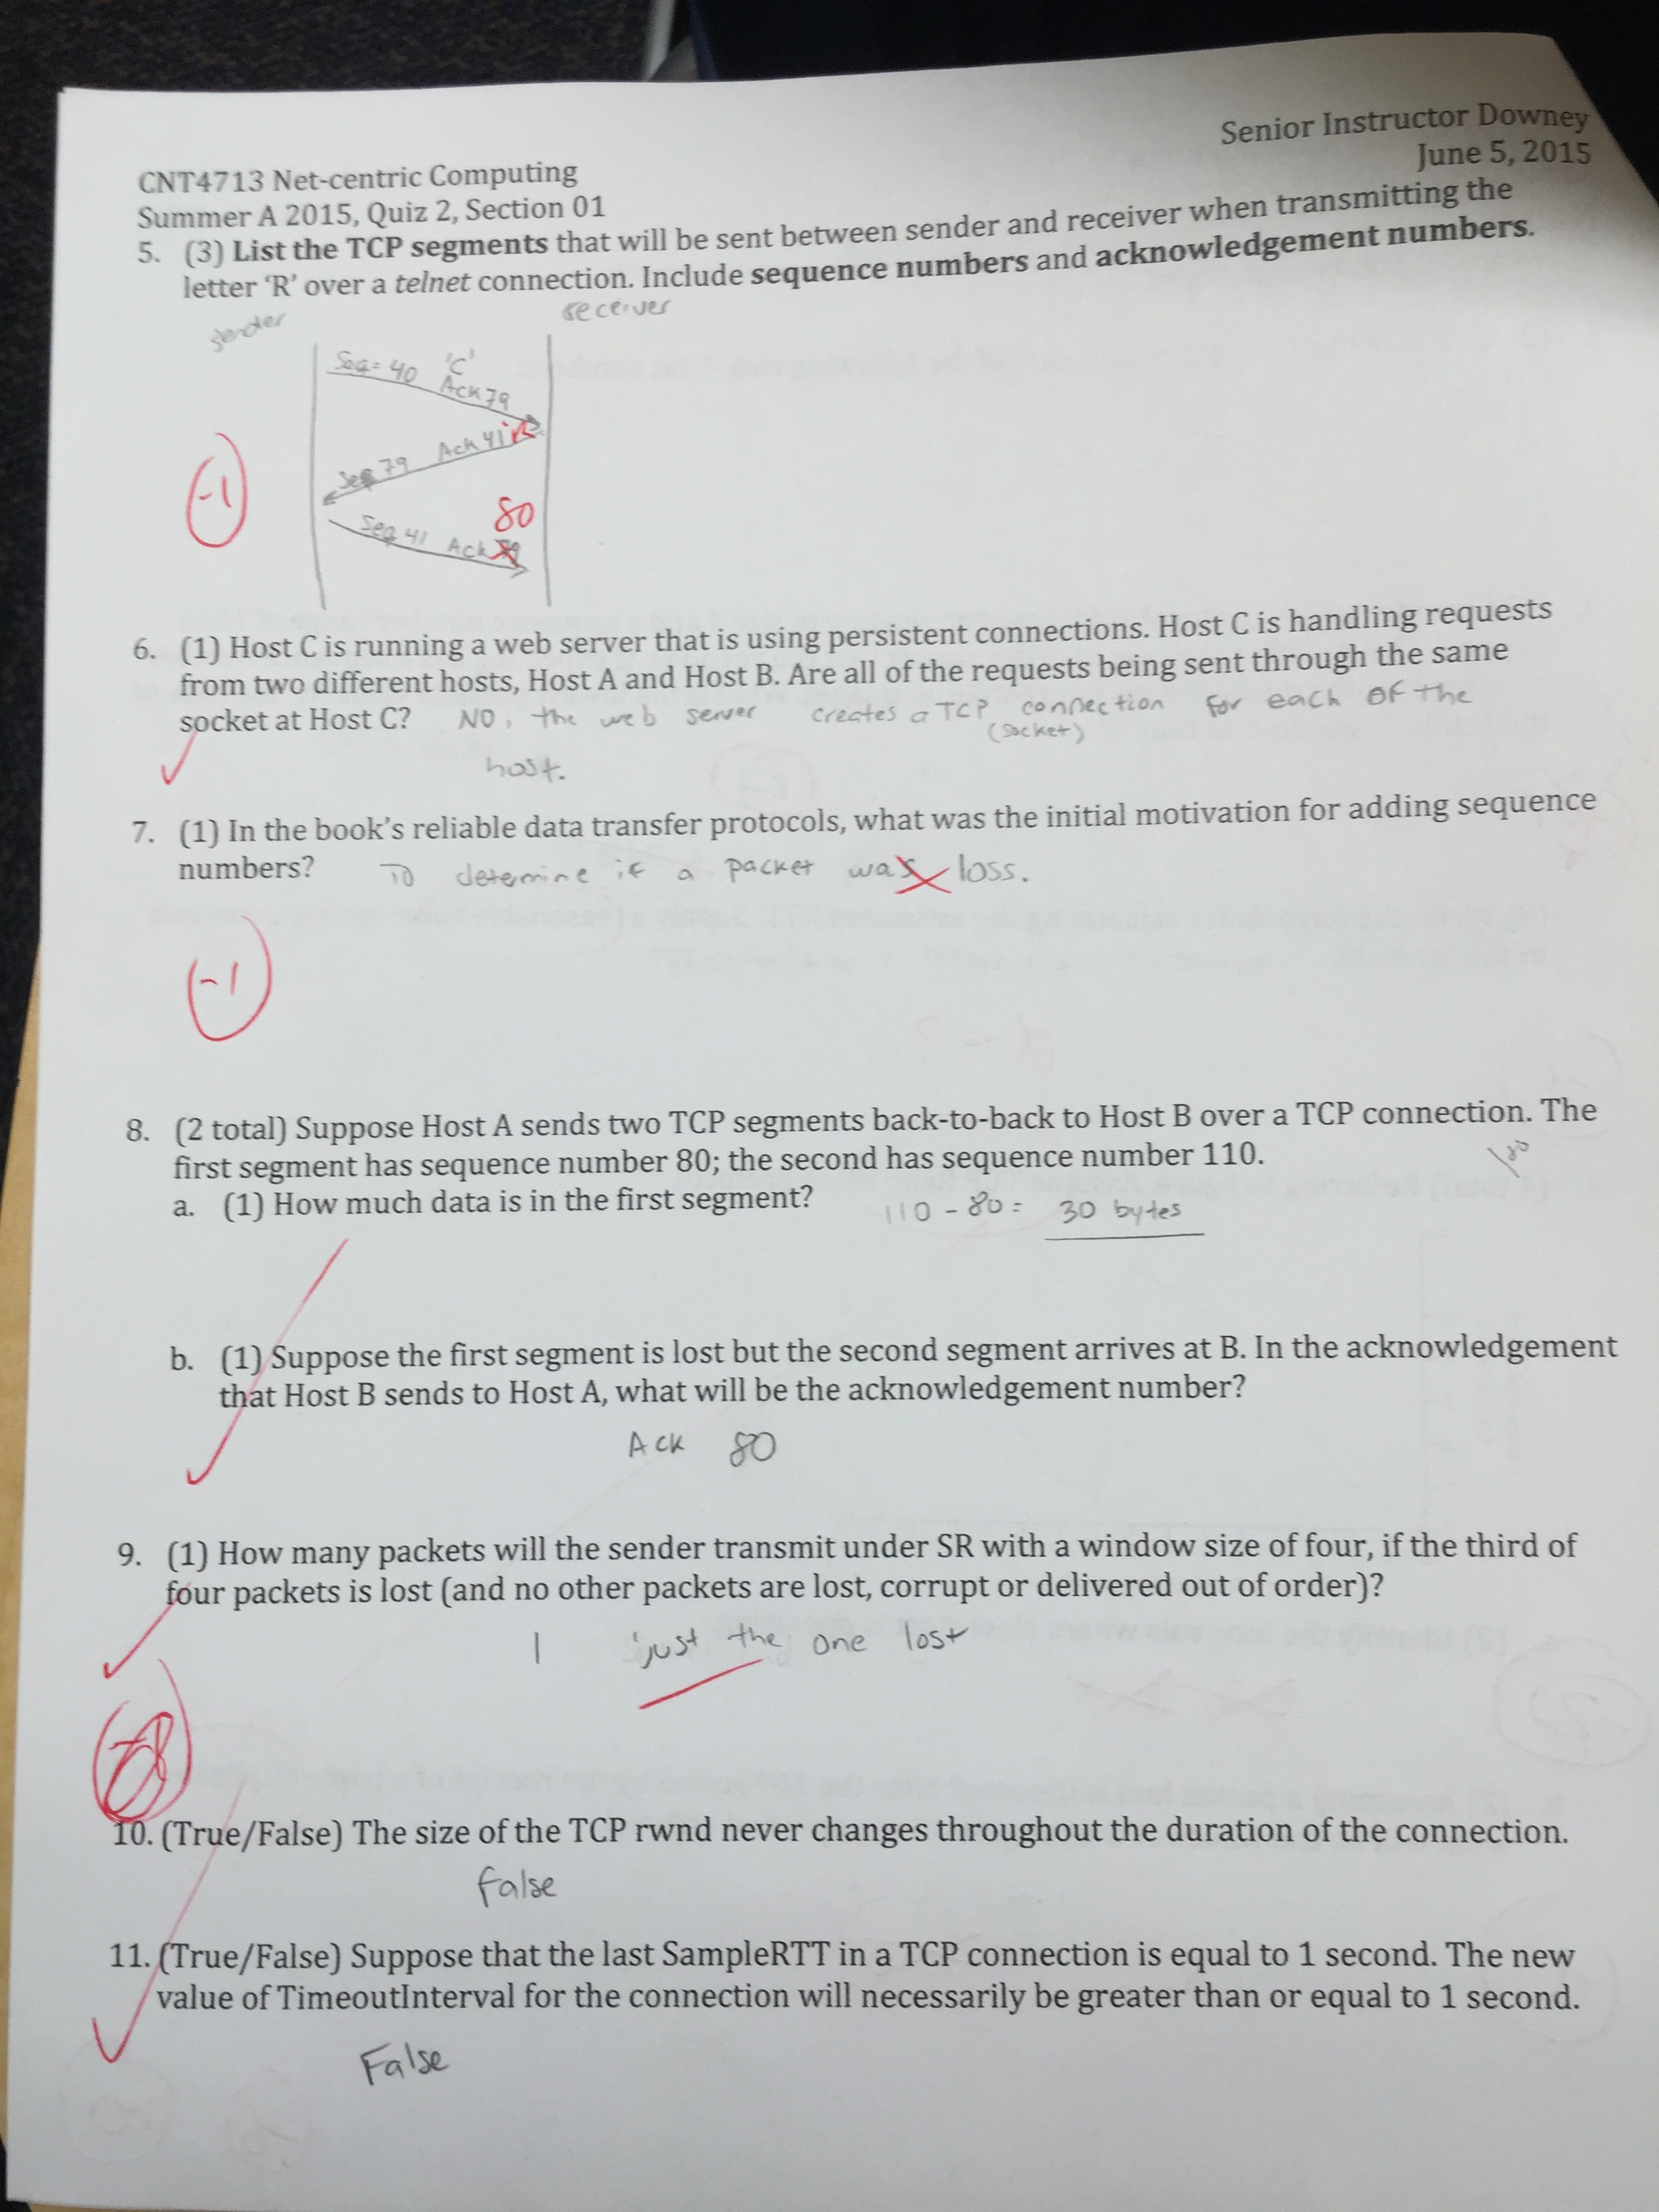 Senior Instructor Downey
June 5, 2015
CNT4713 Net-centric Computing
Summer A 2015, Quiz 2, Section 01
5. (3) List the TCP segments that will be sent between sender and receiver when transmitting the
letter ‘R’ over a telnet connection. Include sequence numbers and acknowledgement numbers.
sender
receiver
Seq= 40 'C'
Ack 79
Seq 79 Ack 41
-1
80
Seq 41 Ack
6. (1) Host C is running a web server that is using persistent connections. Host C is handling requests
from two different hosts, Host A and Host B. Are all of the requests being sent through the same
socket at Host C? NO, the web server creates a TCP connection for each of the
(socket)
host.
7. (1) In the book’s reliable data transfer protocols, what was the initial motivation for adding sequence
numbers? To determine if a packet was loss.
-1
8. (2 total) Suppose Host A sends two TCP segments back-to-back to Host B over a TCP connection. The
first segment has sequence number 80; the second has sequence number 110.
a. (1) How much data is in the first segment? 110 - 80 = 30 bytes
b. (1) Suppose the first segment is lost but the second segment arrives at B. In the acknowledgement
that Host B sends to Host A, what will be the acknowledgement number?
Ack 80
9. (1) How many packets will the sender transmit under SR with a window size of four, if the third of
four packets is lost (and no other packets are lost, corrupt or delivered out of order)?
1 just the one lost
10. (True/False) The size of the TCP rwnd never changes throughout the duration of the connection.
false
11. (True/False) Suppose that the last SampleRTT in a TCP connection is equal to 1 second. The new
value of TimeoutInterval for the connection will necessarily be greater than or equal to 1 second.
False